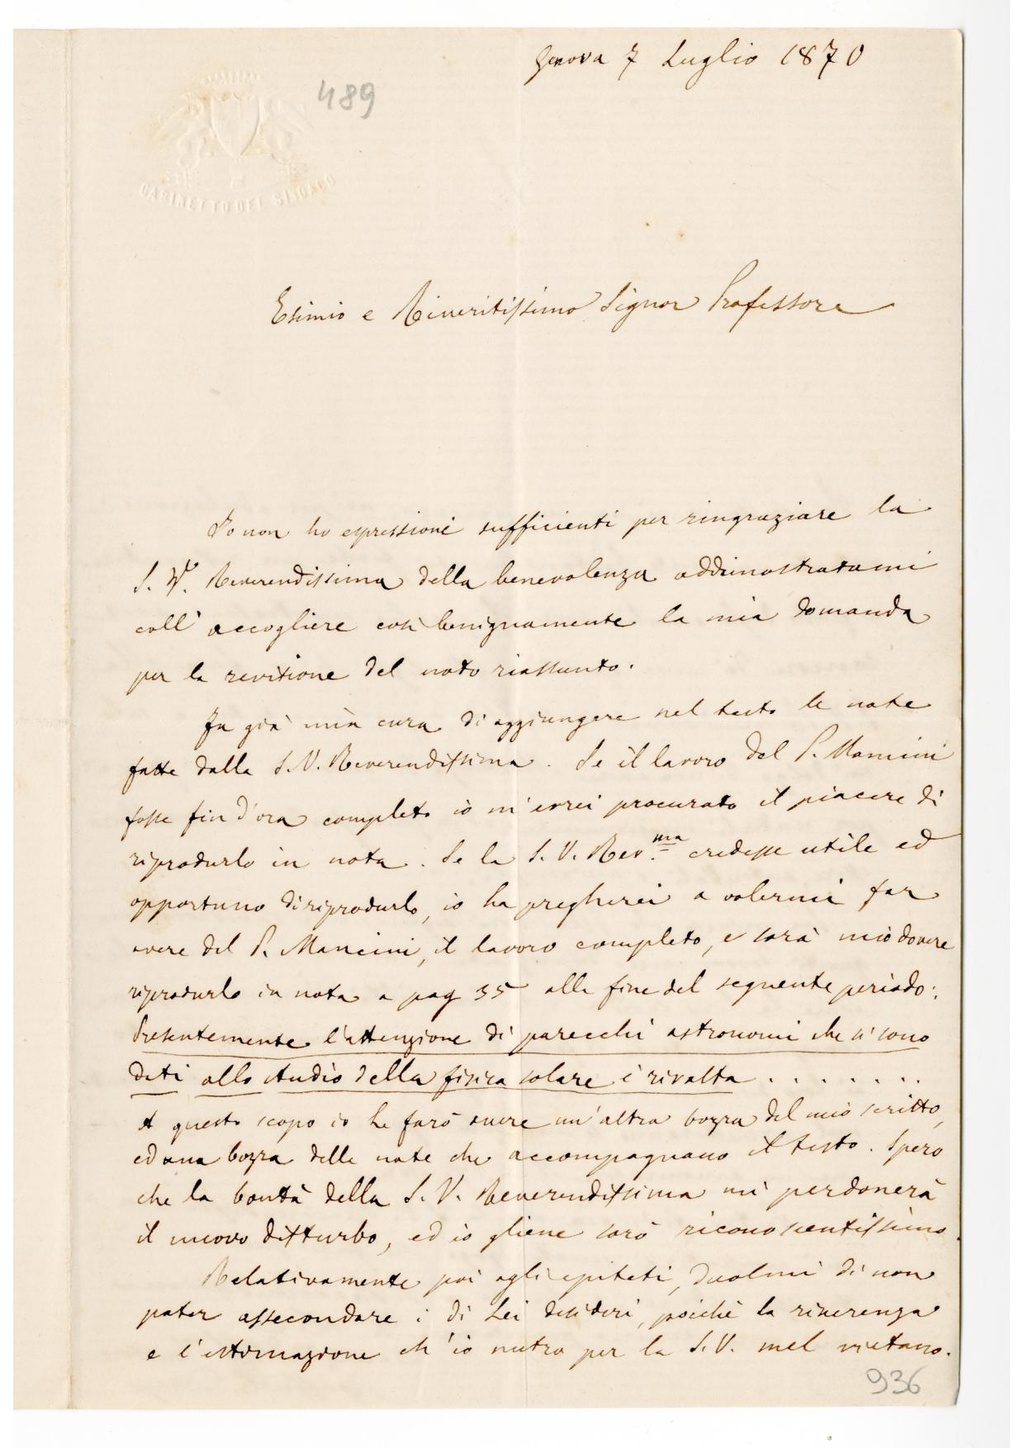 Genova 7 Luglio 1870
489
GABINETTO DEL SINDACO
Esimio e Riveritissimo Signor Professore
Io non ho espressioni sufficienti per ringraziare la
S. V. Reverendissima della benevolenza addimostratami
coll' accogliere così benignamente la mia domanda
per la revisione del noto riassunto.
Fu già mia cura di aggiungere nel testo le note
fatte dalla S. V. Reverendissima. Se il lavoro del P. Mancini
fosse fin d'ora completo io m'avrei procurato il piacere di
riprodurlo in nota. Se la S. V. Rev.ma credesse utile ed
opportuno di riprodurlo, io la pregherei a volermi far
avere del P. Mancini, il lavoro completo, e sarà mio dovere
riprodurlo in nota a pag 35 alla fine del seguente periodo:
Presentemente l'attenzione di parecchi astronomi che si sono
dati allo studio della fisica solare è rivolta . . . . . . .
A questo scopo io le farò avere un'altra bozza del mio scritto,
ed una bozza delle note che accompagnano il testo. Spero
che la bontà della S. V. Reverendissima mi perdonerà
il nuovo disturbo, ed io gliene sarò riconoscentissimo.
Relativamente poi agli epiteti, duolmi di non
poter assecondare i di Lei desideri, poichè la riverenza
e l'estimazione ch'io nutro per la S. V. mel vietano.
936